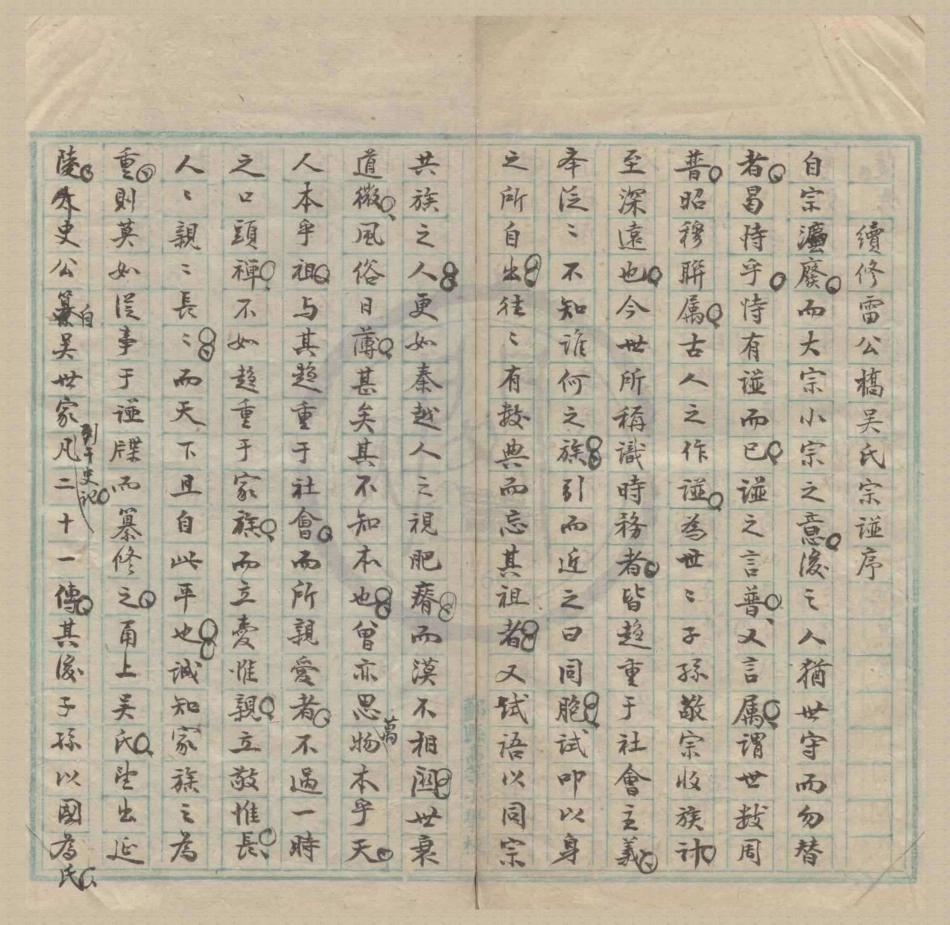 續修雷公橋吳氏宗諩序
自宗灋廢而大宗小宗之意後之人猶世守而勿替
者曷恃乎恃有諩而已諩之言普又言属謂世数周
普昭穆聯属古人之作諩為世〻子孫敬宗收族計
至深遠也今世所稱識時務者皆趋重于社會主義
夲泛〻不知誰何之族引而近之曰同胞試叩以身
之所自出往〻有数典而忘其祖者又試語以同宗
共族之人更如秦越人之視肥瘠而漠不相關世衰
道微風俗日薄甚矣其不知本也曾亦思萬物本乎天
人本乎祖与其趋重于社會而所親愛者不過一時
之口頭禪不如趋重于家族而立愛惟親立敬惟長
人〻親〻長〻而天下且自此平也誠知家族之為
重則莫如從事于諩牒而纂修之甬上吳氏望出延
陵史公自吳世家列于史記凡二十一傳其後子孫以國為氏